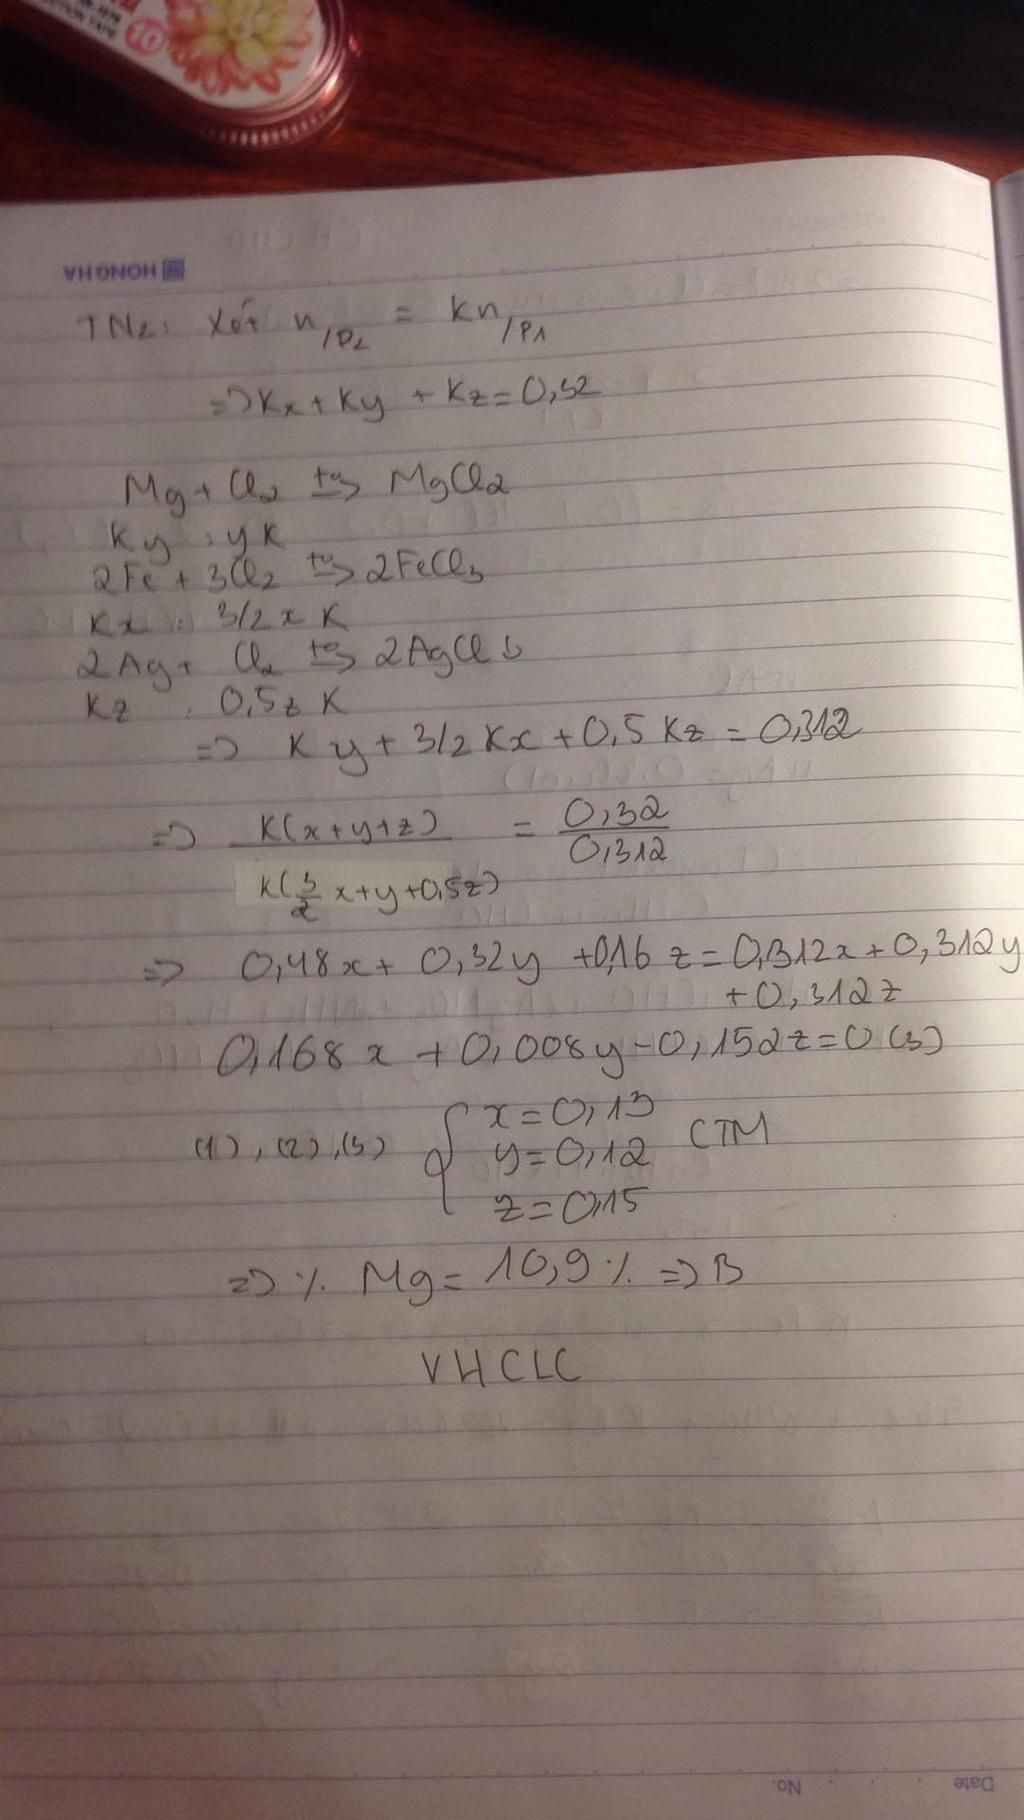 HONG HA
TN2: Xét n/P2 = Kn/P1
=> Kx + Ky + Kz = 0,32
Mg + Cl2 t°→ MgCl2
Ky : yK
2Fe + 3Cl2 t°→ 2FeCl3
Kx : 3/2 x K
2Ag + Cl2 t°→ 2AgCl ↓
Kz : 0,5z K
=> Ky + 3/2 Kx + 0,5 Kz = 0,312
=> K(x+y+z) / K(3/2 x+y+0,5z) = 0,32 / 0,312
=> 0,48x + 0,32y + 0,16 z = 0,312x + 0,312y
+ 0,312z
0,168x + 0,008y - 0,152z = 0 (3)
(1), (2), (3) { x = 0,13
y = 0,12 CTM
z = 0,15
=> % Mg = 10,9% => B
VHCLC
No.
Date